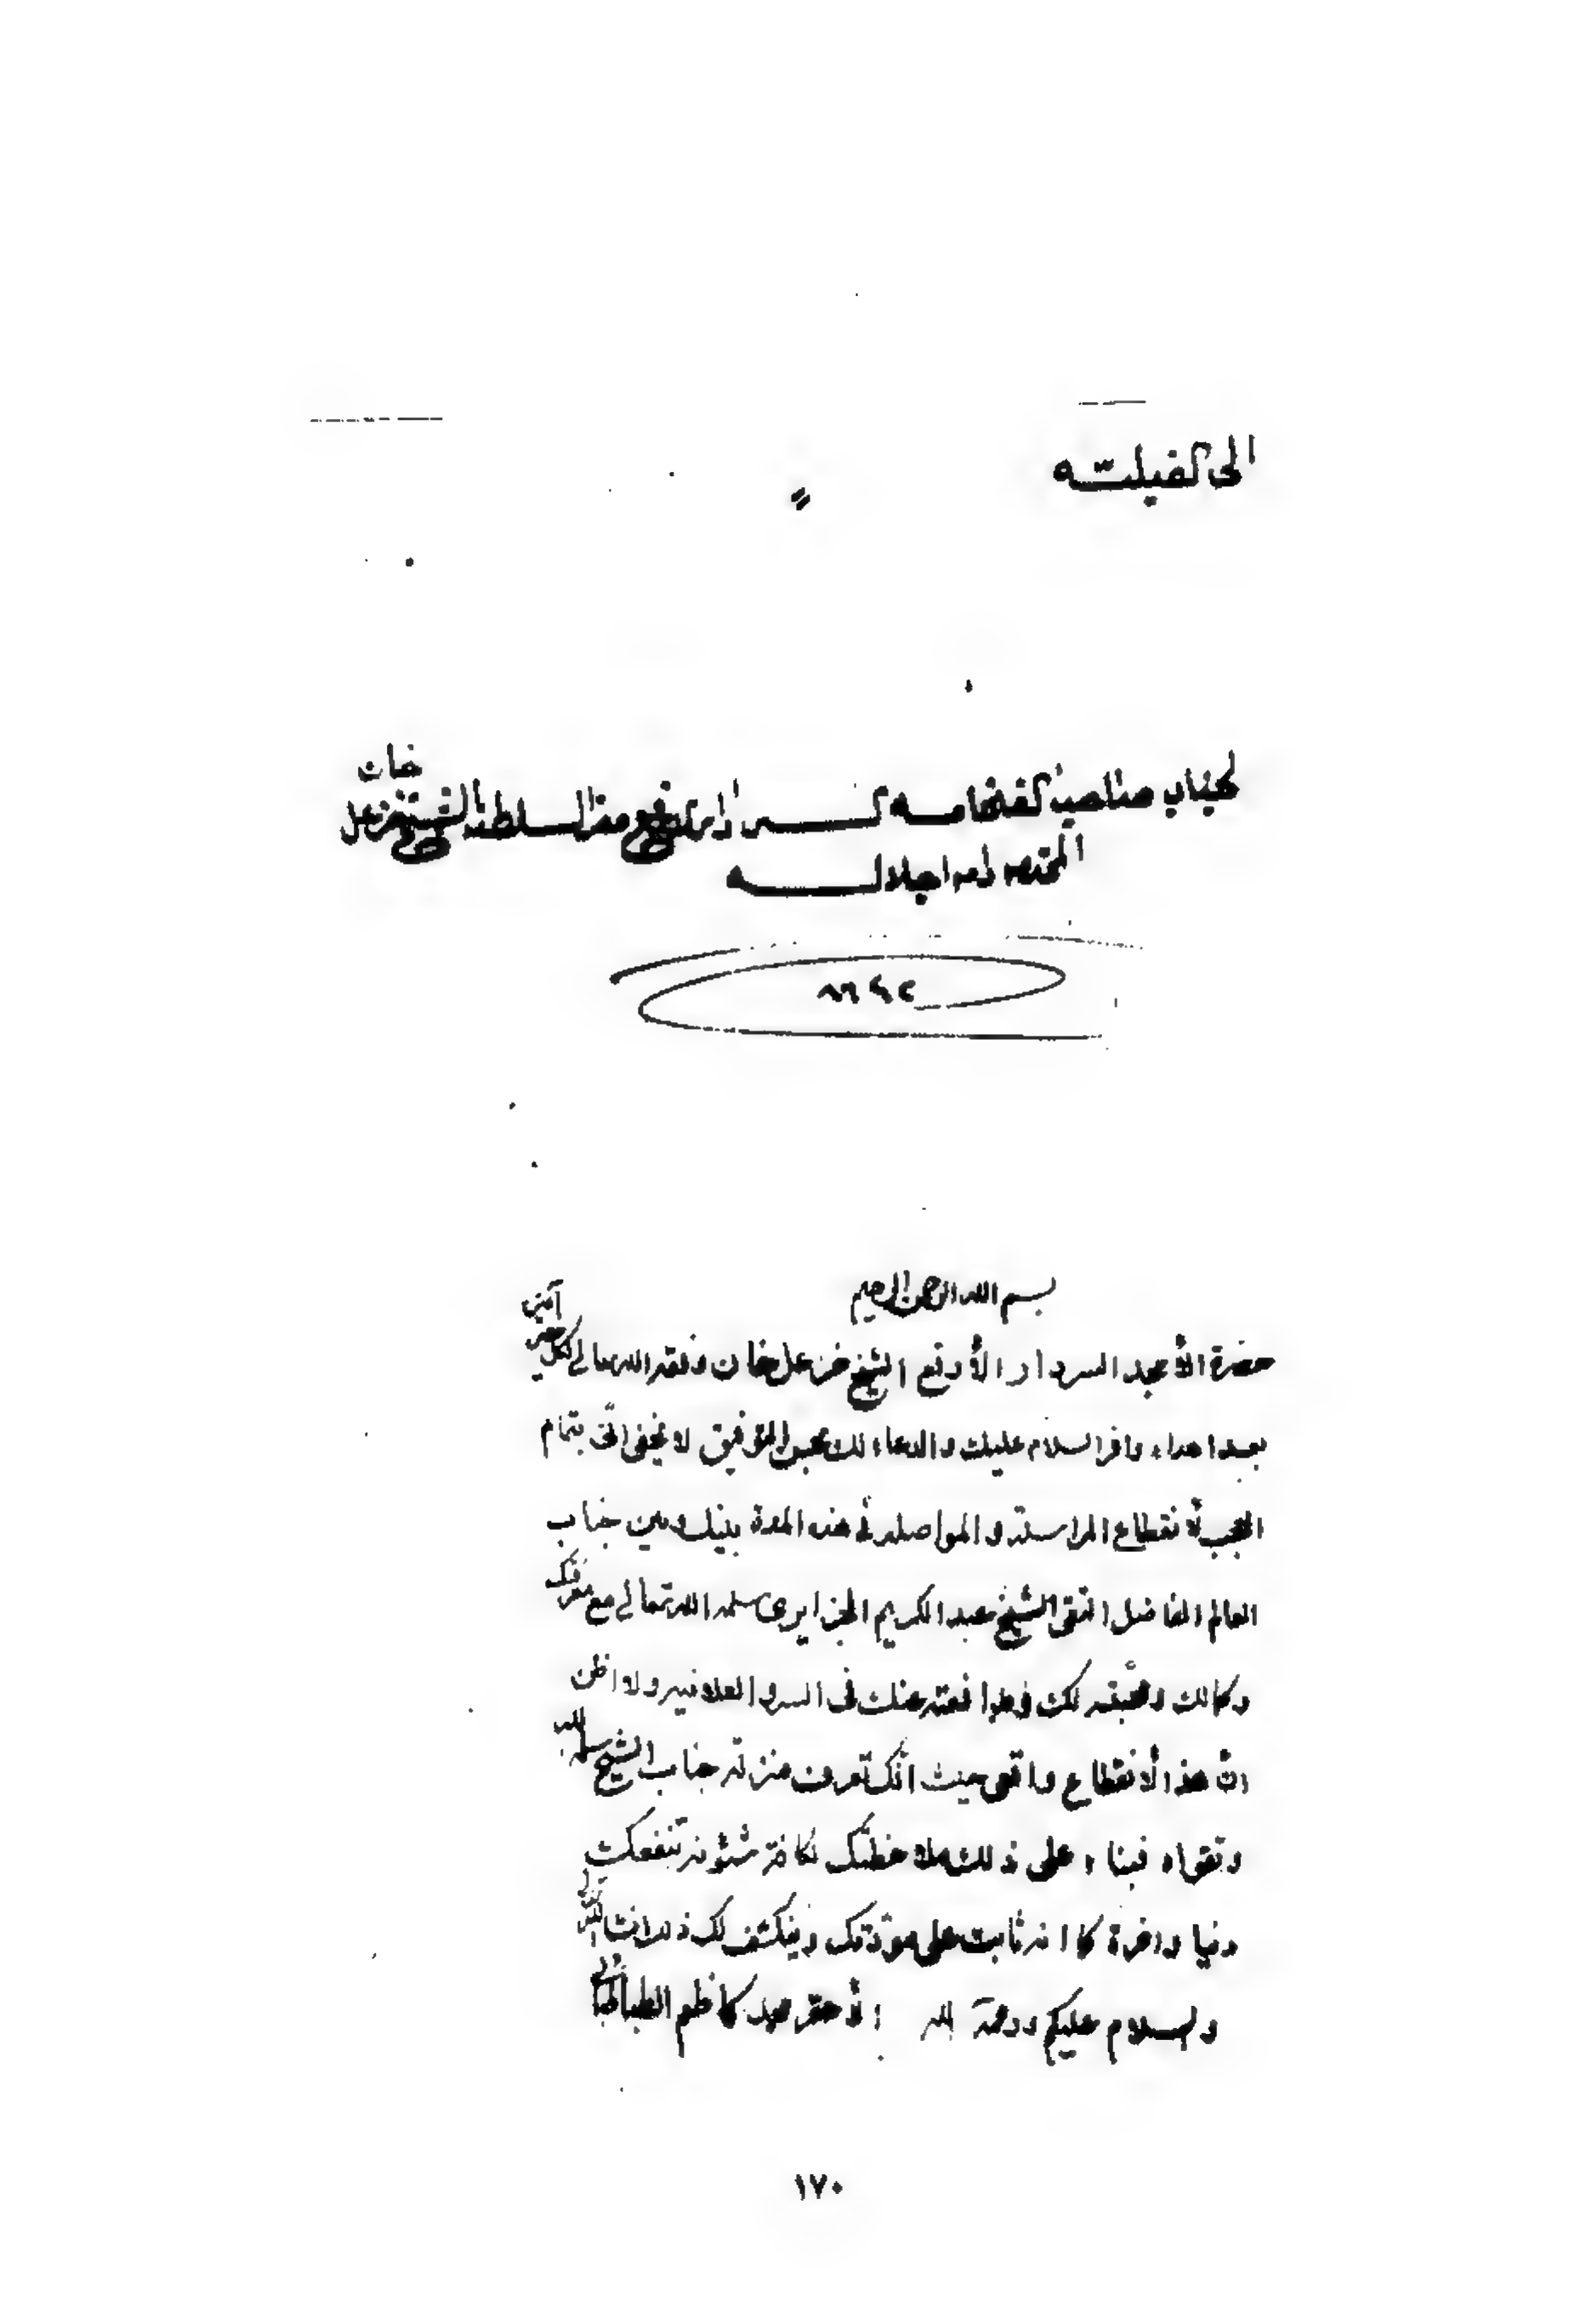 الى الفيلية
لجناب صاحب الفخامة السردار ارفع معز السلطنة الشيخ خزعل خان
المحترم دام اجلاله
٨٦٤٢
بسم الله الرحمن الرحيم
حضرة الأمجد السردار الأرفع الشيخ خزعل خان وفقه الله تعالى لكل خير آمين
بعد اهداء وافر السلام عليك والدعاء لك بحسن التوفيق لا يخفى انّي بتمام
العجب لأنقطاع المراسلة والمواصلة في هذه المدة بينك وبين جناب
العالم الفاضل التقي الشيخ عبد الكريم الجزايرى سلمه الله تعالى مع معرفتك
وكمالك ومحبّته لك في السر والعلانيه ولا اظن
انّ هذا الأنقطاع واقعى حيث انّك تعرف منزلة جناب الشيخ سلمه الله
وتقواه فبناء على ذلك ملاحظتك لكافة شئونه تنفعك
دنيا واخرة كما انه ثابت على مودّتك وينكشف لك ذلك انشاء الله تعالى
والسلام عليكم ورحمة الله الأحقر محمد كاظم الطباطبائي
١٧٠